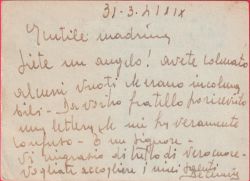 31-3-XIIX
Gentile madrina
Siete un angelo! avete colmato
alcuni vuoti che erano incolma
bili - Da vostro fratello poi ricevuto
una lettera che mi ha veramente
confuso - È un signore -
Vi ringrazio di tutto di vero cuore -
Vogliate accogliere i miei saluti